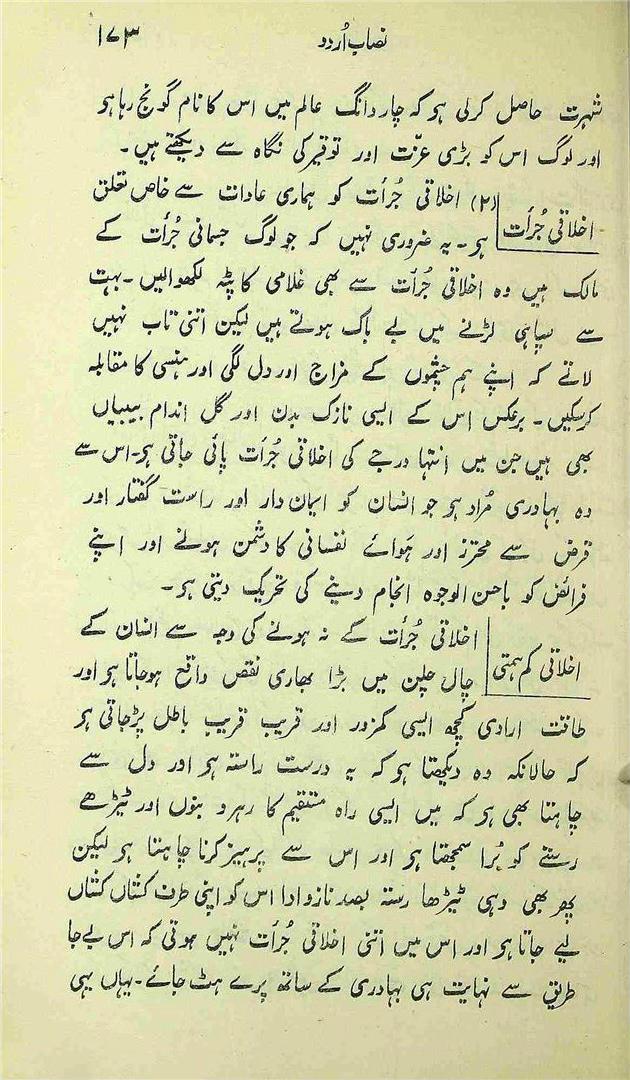 نصاب اُردو ۱۷۳
شہرت حاصل کرلی ہو کہ چار دانگ عالم میں اس کا نام گونج رہا ہو
اور لوگ اس کو بڑی عزّت اور توقیر کی نگاہ سے دیکھتے ہیں۔
اخلاقی جُرأت
(۲) اخلاقی جُرأت کو ہماری عادات سے خاص تعلق
ہو۔ یہ ضروری نہیں کہ جو لوگ جسمانی جُرأت کے
مالک ہیں وہ اخلاقی جُرأت سے بھی غلامی کا پٹہ لکھوالیں۔ بہت
سے سپاہی لڑنے میں بے باک ہوتے ہیں لیکن اتنی تاب نہیں
لاتے کہ اپنے ہم چشموں کے مزاج اور دل لگی اور ہنسی کا مقابلہ
کرسکیں۔ برعکس اس کے ایسی نازک بدن اور گل اندام بیبیاں
بھی ہیں جن میں انتہا درجے کی اخلاقی جُرأت پائی جاتی ہو۔ اس سے
وہ بہادری مُراد ہو جو انسان کو ایمان دار اور راست گفتار اور
قرض سے محترز اور ہَوائے نفسانی کا دشمن ہونے اور اپنے
فرائض کو باحسن الوجوہ انجام دینے کی تحریک دیتی ہو۔
اخلاقی کم ہمتی
اخلاقی جُرأت کے نہ ہونے کی وجہ سے انسان کے
چال چلن میں بڑا بھاری نقص واقع ہوجاتا ہو اور
طاقت ارادی کچھ ایسی کمزور اور قریب قریب باطل پڑجاتی ہو
کہ حالانکہ وہ دیکھتا ہو کہ یہ درست راستہ ہو اور دل سے
چاہتا بھی ہو کہ میں ایسی راہ مستقیم کا رہرو بنوں اور ٹیڑھے
رستے کو بُرا سمجھتا ہو اور اس سے پرہیز کرنا چاہتا ہو لیکن
پھر بھی وہی ٹیڑھا رستہ بصد ناز و ادا اس کو اپنی طرف کشاں کشاں
لیے جاتا ہو اور اس میں اتنی اخلاقی جُرأت نہیں ہوتی کہ اس بے جا
طریق سے نہایت ہی بہادری کے ساتھ پرے ہٹ جائے۔ یہاں یہی